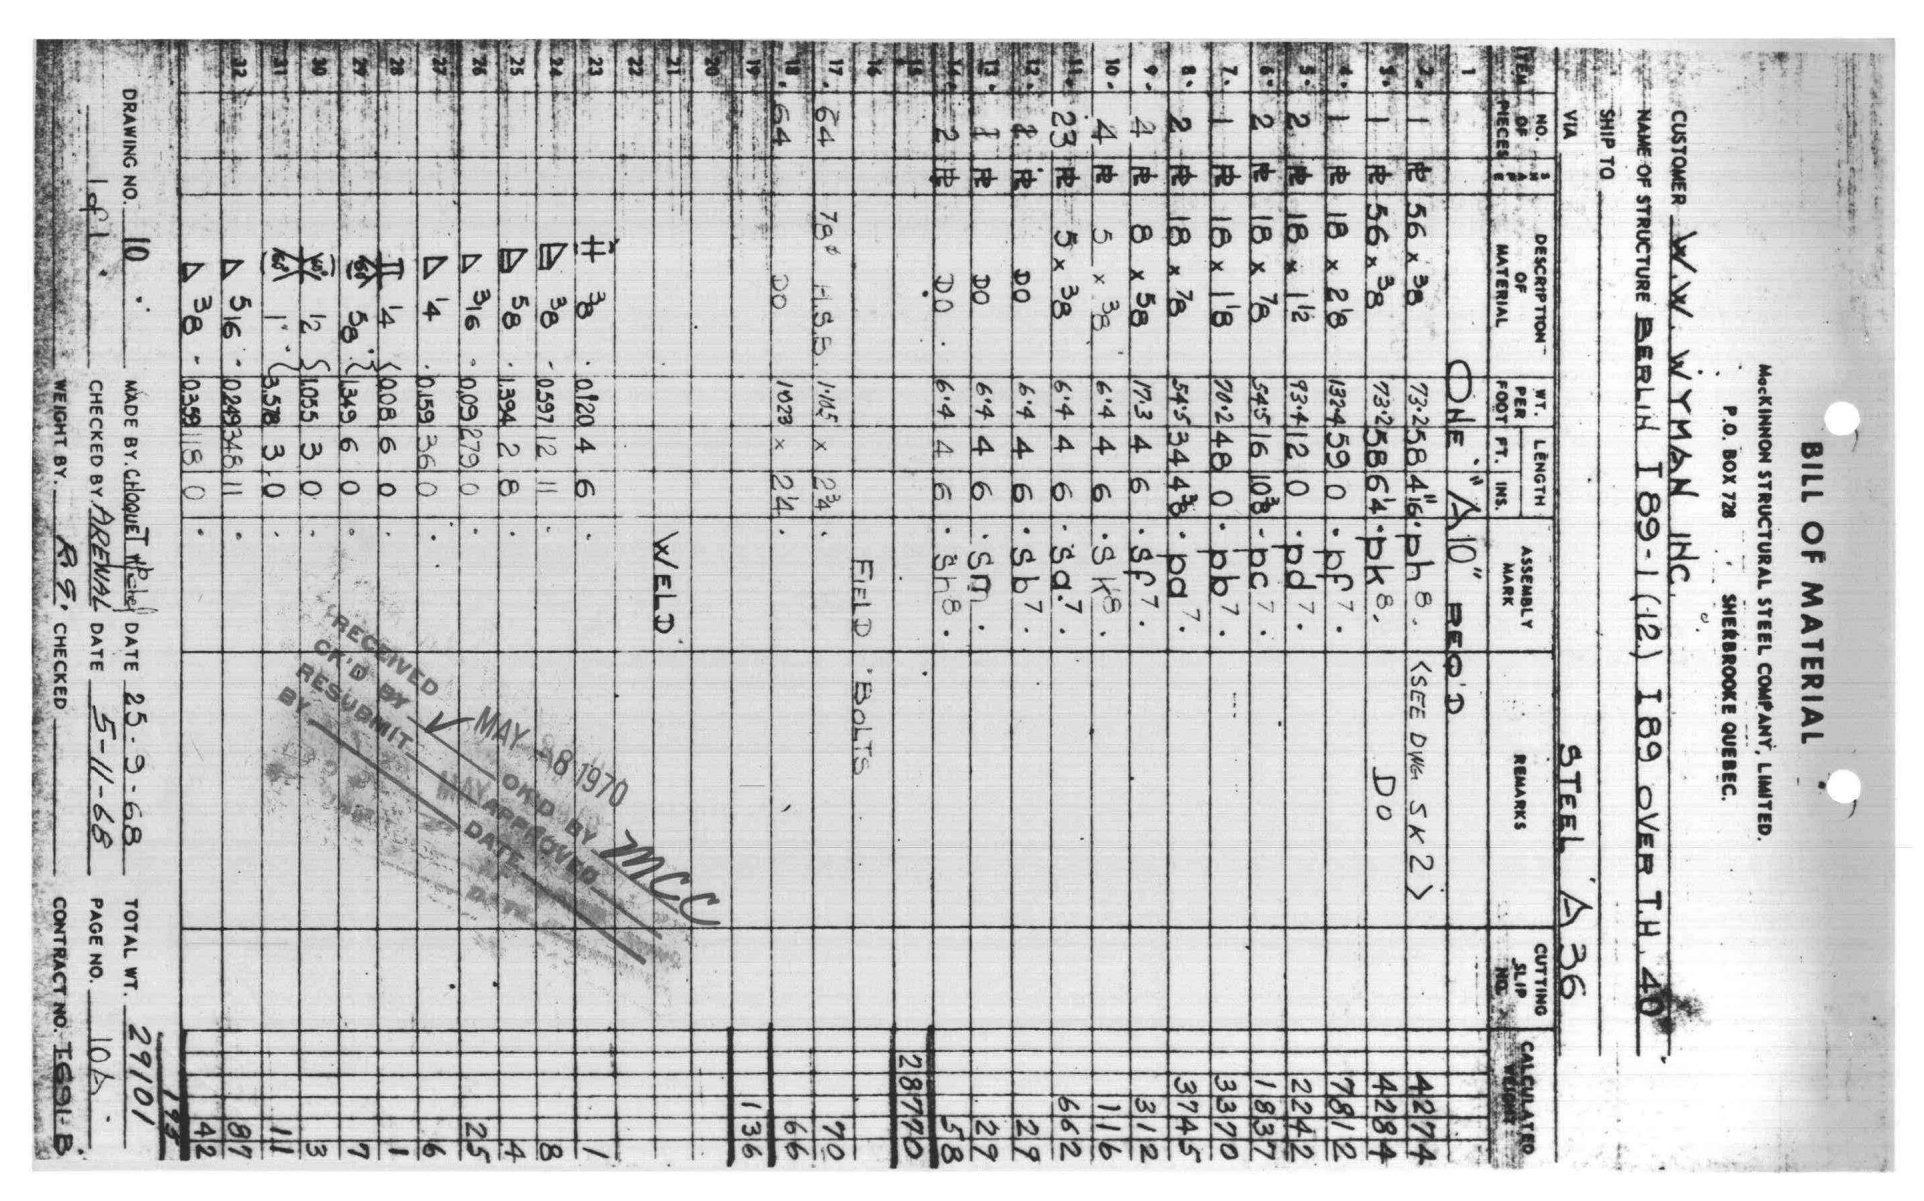 BILL OF MATERIAL
MacKINNON STRUCTURAL STEEL COMPANY, LIMITED.
P.O. BOX 728 SHERBROOKE QUEBEC.
CUSTOMER W.W. WYMAN INC.
NAME OF STRUCTURE BERLIN I 89-1(12) I 89 OVER T.H. 40
SHIP TO
VIA STEEL A 36
ITEM NO. OF PIECES SHAPE DESCRIPTION OF MATERIAL WT. PER FOOT LENGTH FT. INS. ASSEMBLY MARK REMARKS CUTTING SLIP NO. CALCULATED WEIGHT
1 ONE "A10" REQ'D
2. 1 PL 56 x 3/8 73.2 58 4 11/16 ph8. (SEE DWG SK2) 4274
3. 1 PL 56 x 3/8 73.2 58 6 1/4 pk8. DO 4284
4. 1 PL 18 x 2 1/8 132.4 59 0 pf7. 7812
5. 2 PL 18 x 1 1/2 93.4 12 0 pd7. 2242
6. 2 PL 18 x 7/8 54.5 16 10 3/8 pc7. 1837
7. 1 PL 18 x 1 1/8 70.2 48 0 pb7. 3370
8. 2 PL 18 x 7/8 54.5 34 4 3/8 pa7. 3745
9. 4 PL 8 x 5/8 17.3 4 6 sf7. 312
10. 4 PL 5 x 3/8 6.4 4 6 sk8. 116
11. 23 PL 5 x 3/8 6.4 4 6 sa7. 662
12. 1 PL DO 6.4 4 6 sb7. 29
13. 1 PL DO 6.4 4 6 sm. 29
14. 2 PL DO 6.4 4 6 sh8. 58
15 28770
16 FIELD BOLTS
17. 64 7/8ø H.S.B. 1.105 x 2 3/4 70
18. 64 DO 1.023 x 2 1/4 66
19 136
20
21 WELD
22
23 3/8 0.120 4 6 1
24 3/8 0.597 12 11 8
25 5/8 1.394 2 8 4
26 3/16 0.09 279 0 25
27 1/4 0.159 36 0 6
28 1/4 0.08 6 0 1
29 60° 5/8 1.349 6 0 7
30 60° 1/2 1.055 3 0 3
31 60° 1" 3.578 3 0 11
32 5/16 0.249 348 11 87
3/8 0.359 118 0 42
RECEIVED MAY 8 1970
CK'D BY OK'D BY MCC
RESUBMIT APPROVED
BY DATE
DRAWING NO. 10 MADE BY. CHOQUETT Michel DATE 25-9-68 TOTAL WT. 29101
1 of 1 CHECKED BY ARENAL DATE 5-11-68 PAGE NO. 10A
WEIGHT BY. R.E. CHECKED CONTRACT NO. I691-B